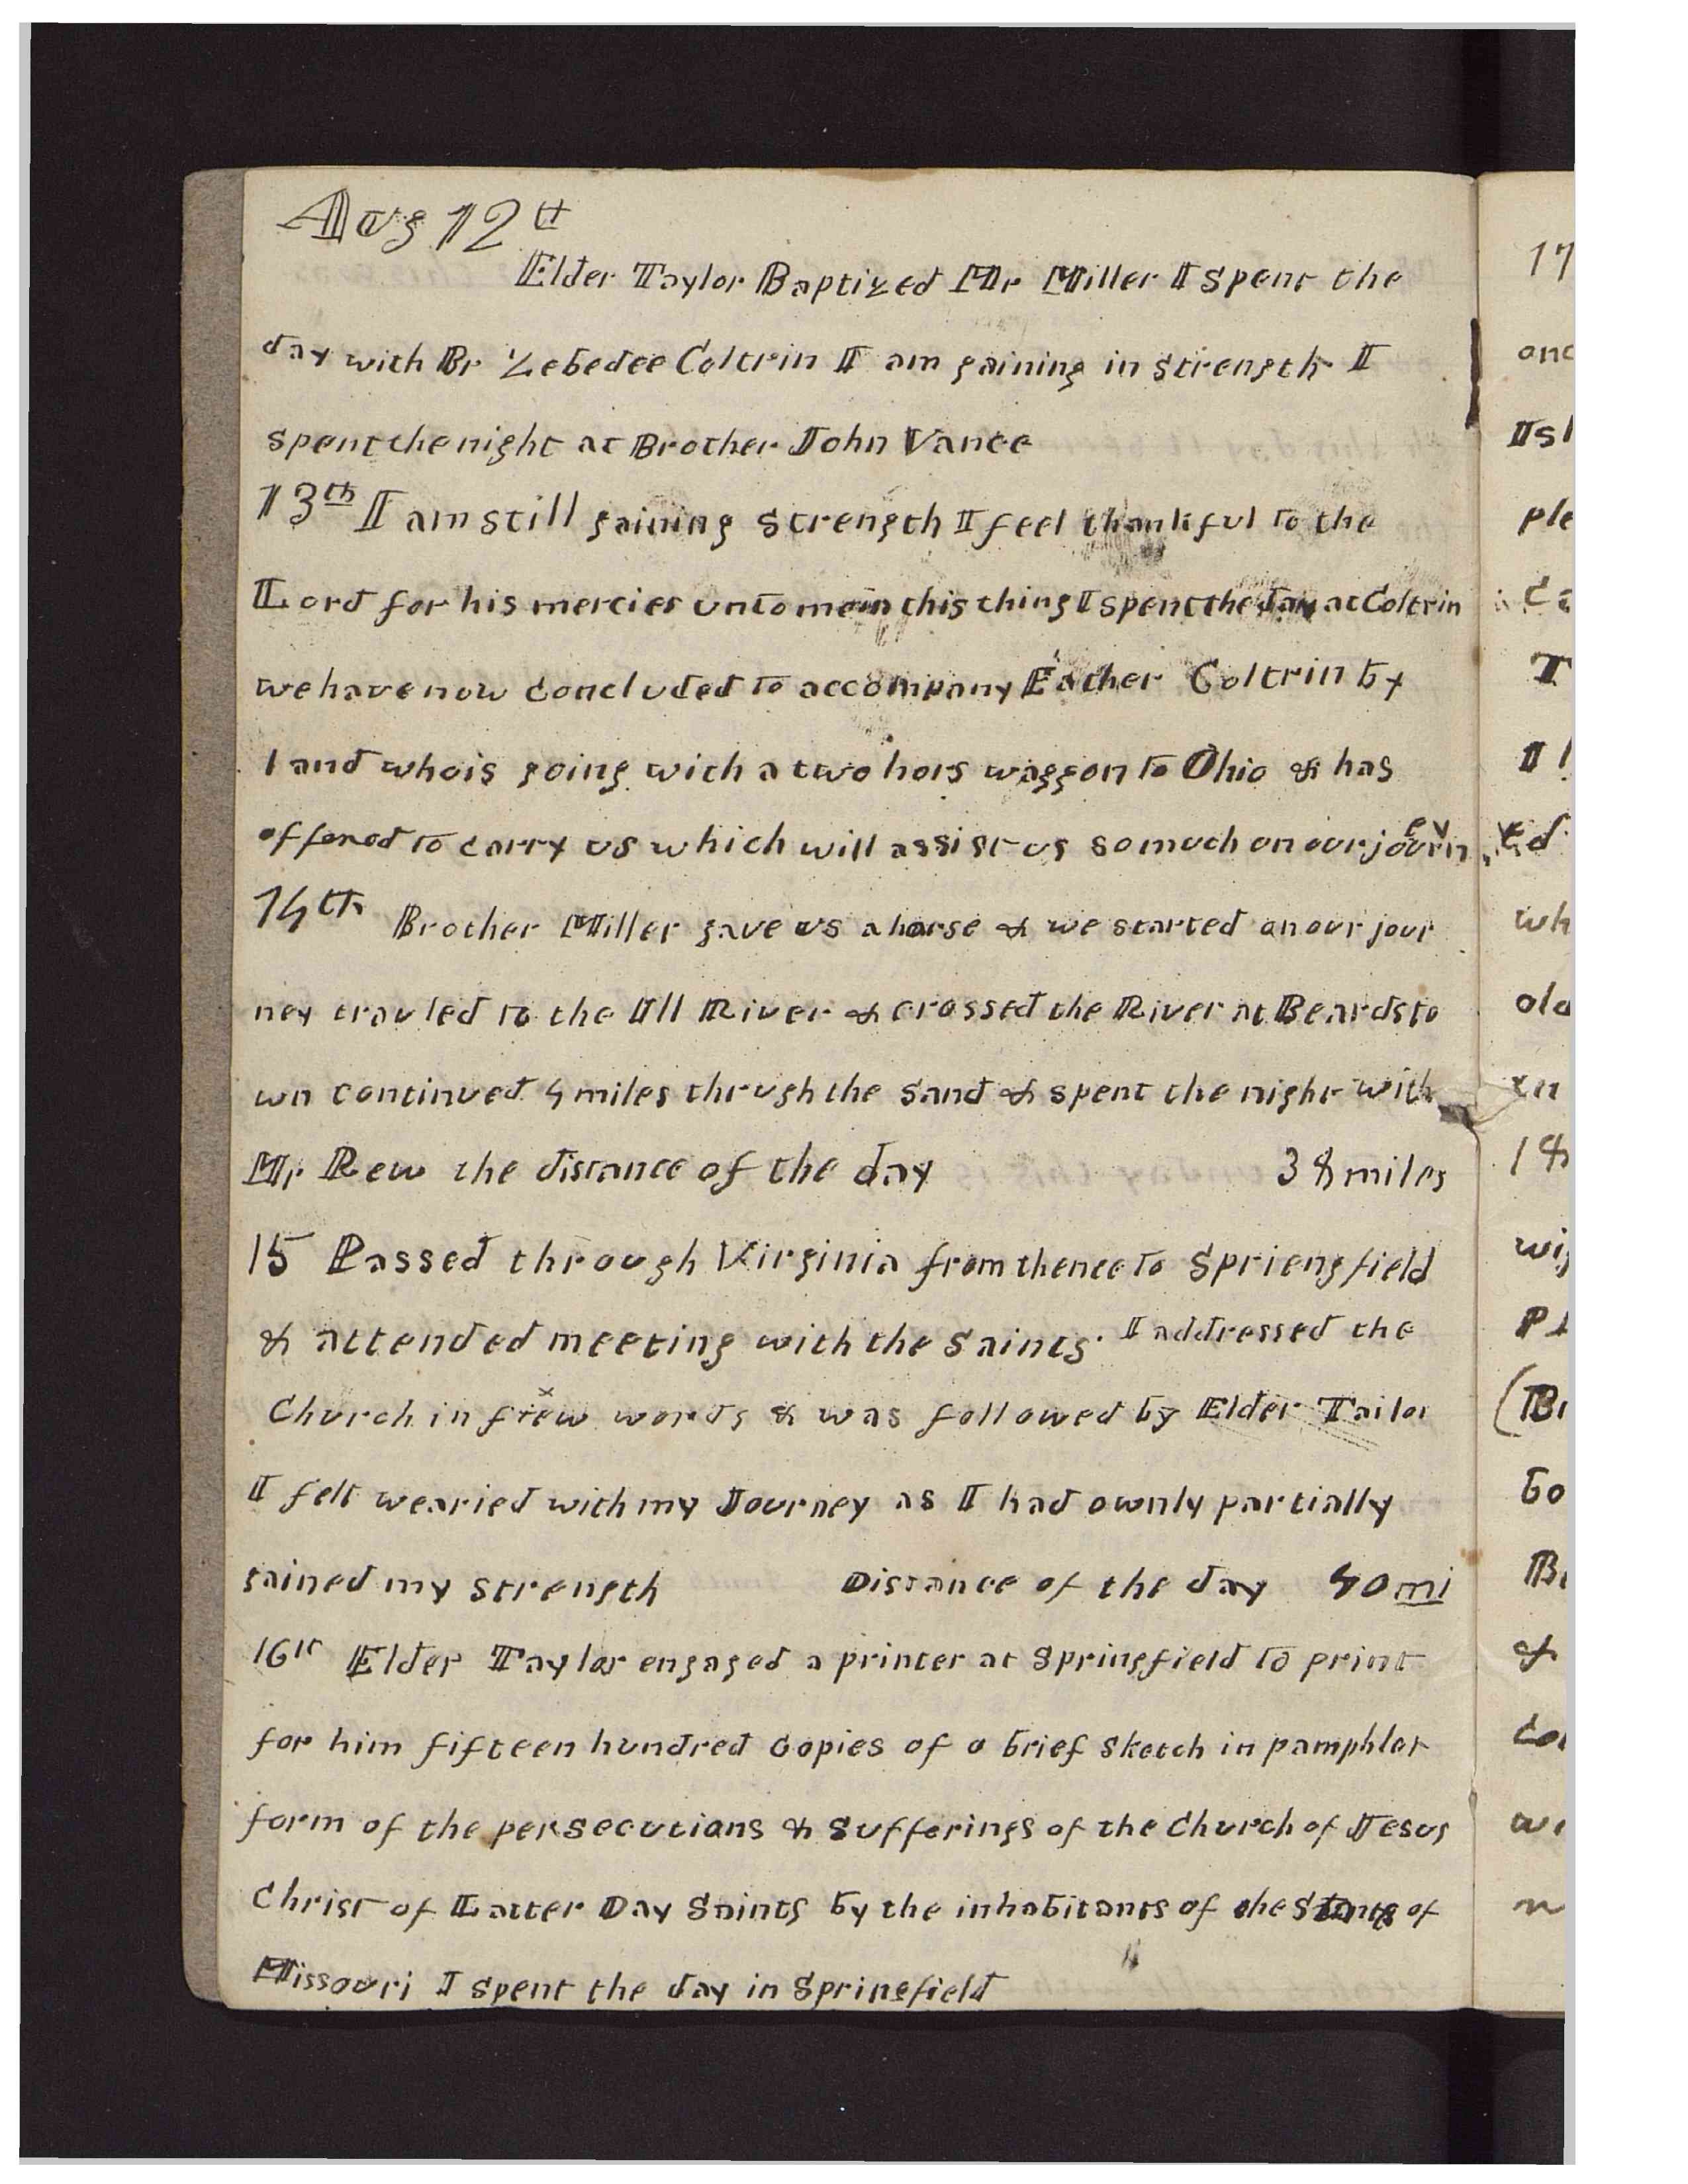 Aug 12th
Elder Taylor Baptized Mr Miller I spent the
day with Br Zebedee Coltrin I am gaining in strength I
spent the night at Brother John Vance
13th I am still gaining strength I feel thankful to the
Lord for his mercies unto me in this thing I spent the day at Coltrin
we have now concluded to accompany Father Coltrin by
land who is going with a two hors waggon to Ohio & has
offered to carry us which will assist us so much on our journey
14th Brother Miller gave us a horse & we started on our jour
ney travled to the Ill River & crossed the River at Beardsto
wn continued 4 miles thrugh the sand & spent the night with
Mr Rew the distance of the day 38 miles
15 Passed through Virginia from thence to Spriengfield
& attended meeting with the Saints. I addressed the
Church in few words & was followed by Elder Tailor
I felt wearied with my Journey as I had ownly partially
gained my strength Distance of the day 40 mi
16th Elder Taylor engaged a printer at Springfield to print
for him fifteen hundred copies of a brief sketch in pamphlet
form of the persecutians & sufferings of the Church of Jesus
Christ of Latter Day Saints by the inhabitants of the State of
Missouri I spent the day in Springfield
17
and
Isl
ple
T
wh
old
18
wi
(Br
bo
&